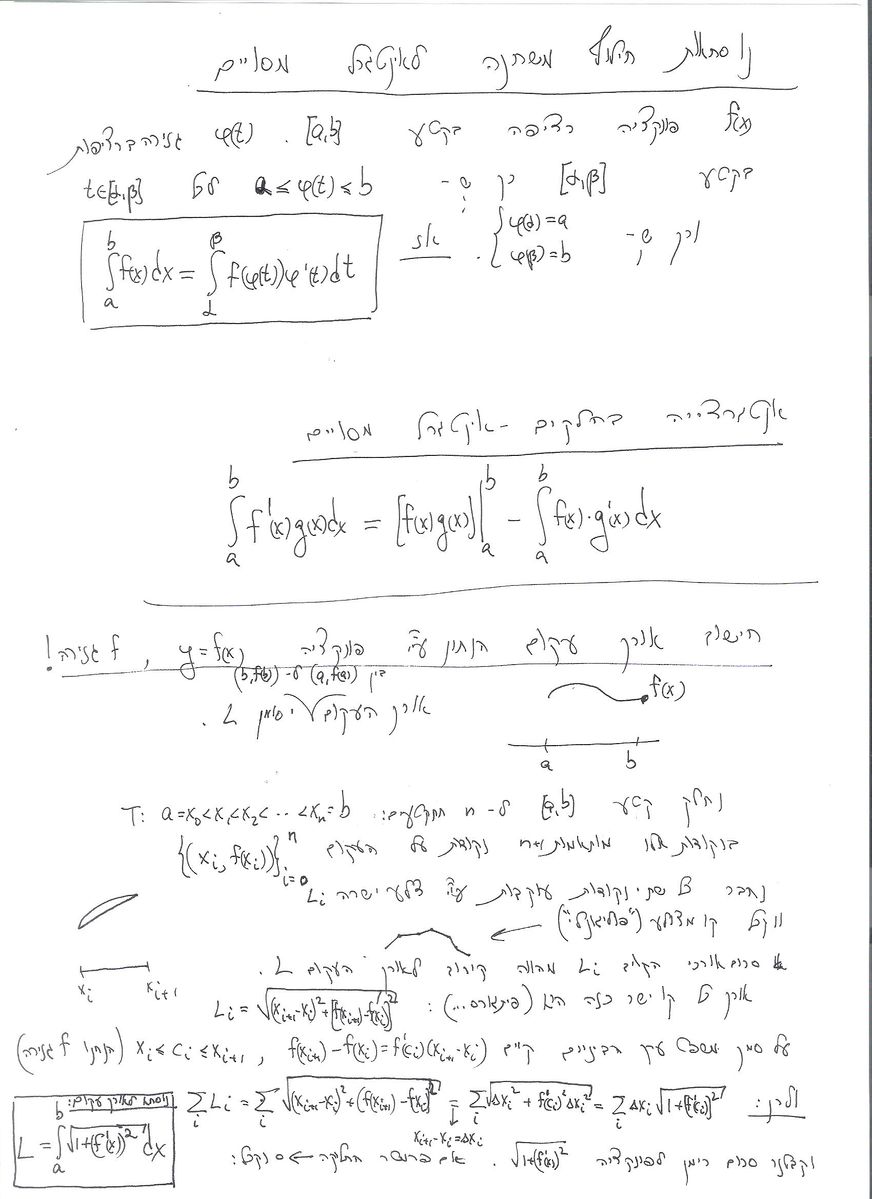 נוסחאת חילוף משתנה לאינטגרל מסויים
f(x) פונקציה רציפה בקטע [a,b]. φ(t) גזירה ברציפות
בקטע [α,β] כך ש- a≤φ(t)≤b לכל t∈[α,β]
וכן ש- { φ(α)=a φ(β)=b . אז
∫_a^b f(x)dx = ∫_α^β f(φ(t))φ'(t)dt
אינטגרצייה בחלקים - אינטגרל מסויים
∫_a^b f'(x)g(x)dx = [f(x)g(x)]|_a^b - ∫_a^b f(x)·g'(x)dx
חישוב אורך עקום הנתון ע"י פונקציה y=f(x), f גזירה!
בין (a,f(a)) ל- (b,f(b))
אורך העקום יסומן L.
f(x)
a b
נחלק קטע [a,b] ל- n תתקטעים: T: a=x₀<x₁<x₂<...<xₙ=b
בנקודות אלו מותאמות n+1 נקודות על העקום {(xᵢ, f(xᵢ))}_{i=0}^n
נחבר כל שתי נקודות עוקבות ע"י צלע ישרה Lᵢ
ונקבל קו מצולע ("פוליגונלי")
סכום אורכי הקוים Lᵢ מהווה קירוב לאורך העקום L.
xᵢ xᵢ₊₁
אורך כל קו ישר כזה הוא (פיתגורס...): Lᵢ = √((xᵢ₊₁-xᵢ)²+[f(xᵢ₊₁)-f(xᵢ)]²)
על סמך משפט ערך הביניים קיים xᵢ≤cᵢ≤xᵢ₊₁, f(xᵢ₊₁)-f(xᵢ)=f'(cᵢ)(xᵢ₊₁-xᵢ) (נתון f גזירה)
ולכן: ∑ᵢLᵢ = ∑ᵢ√((xᵢ₊₁-xᵢ)²+(f(xᵢ₊₁)-f(xᵢ))²) = ∑ᵢ√(Δxᵢ²+f'(cᵢ)²Δxᵢ²) = ∑ᵢΔxᵢ√(1+[f'(cᵢ)]²)
xᵢ₊₁-xᵢ=Δxᵢ
וקבלנו סכום רימן לפונקציה √(1+(f')²). אם פרמטר החלוקה → 0 נקבל:
נוסחא לאורך עקום:
L = ∫_a^b √(1+(f'(x))²)dx